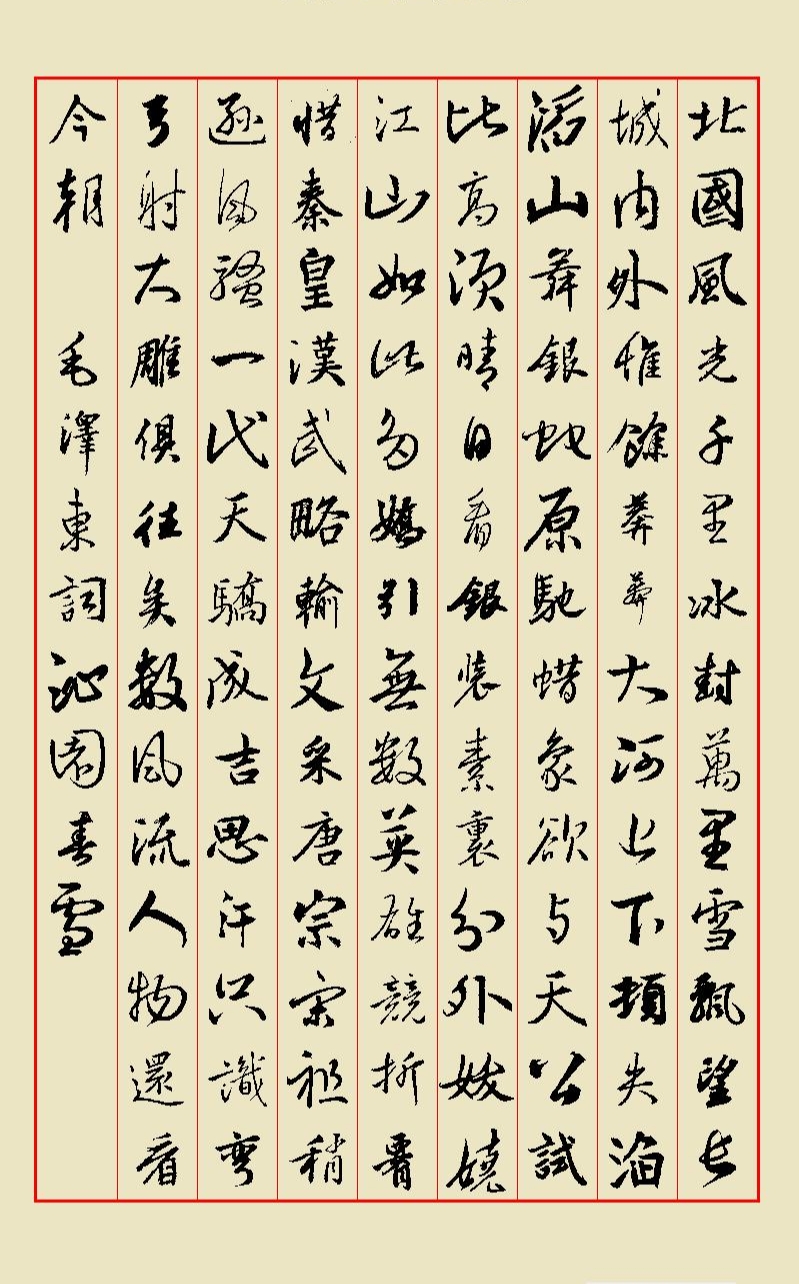 北國風光千里冰封萬里雪飄望長
城内外惟餘莽莽大河上下頓失滔
滔山舞銀蛇原馳蜡象欲与天公試
比高須晴日看銀裝素裹分外妖嬈
江山如此多嬌引無數英雄競折腰
惜秦皇漢武略輸文采唐宗宋祖稍
遜風騷一代天驕成吉思汗只識彎
弓射大雕俱往矣數風流人物還看
今朝 毛澤東詞沁園春雪